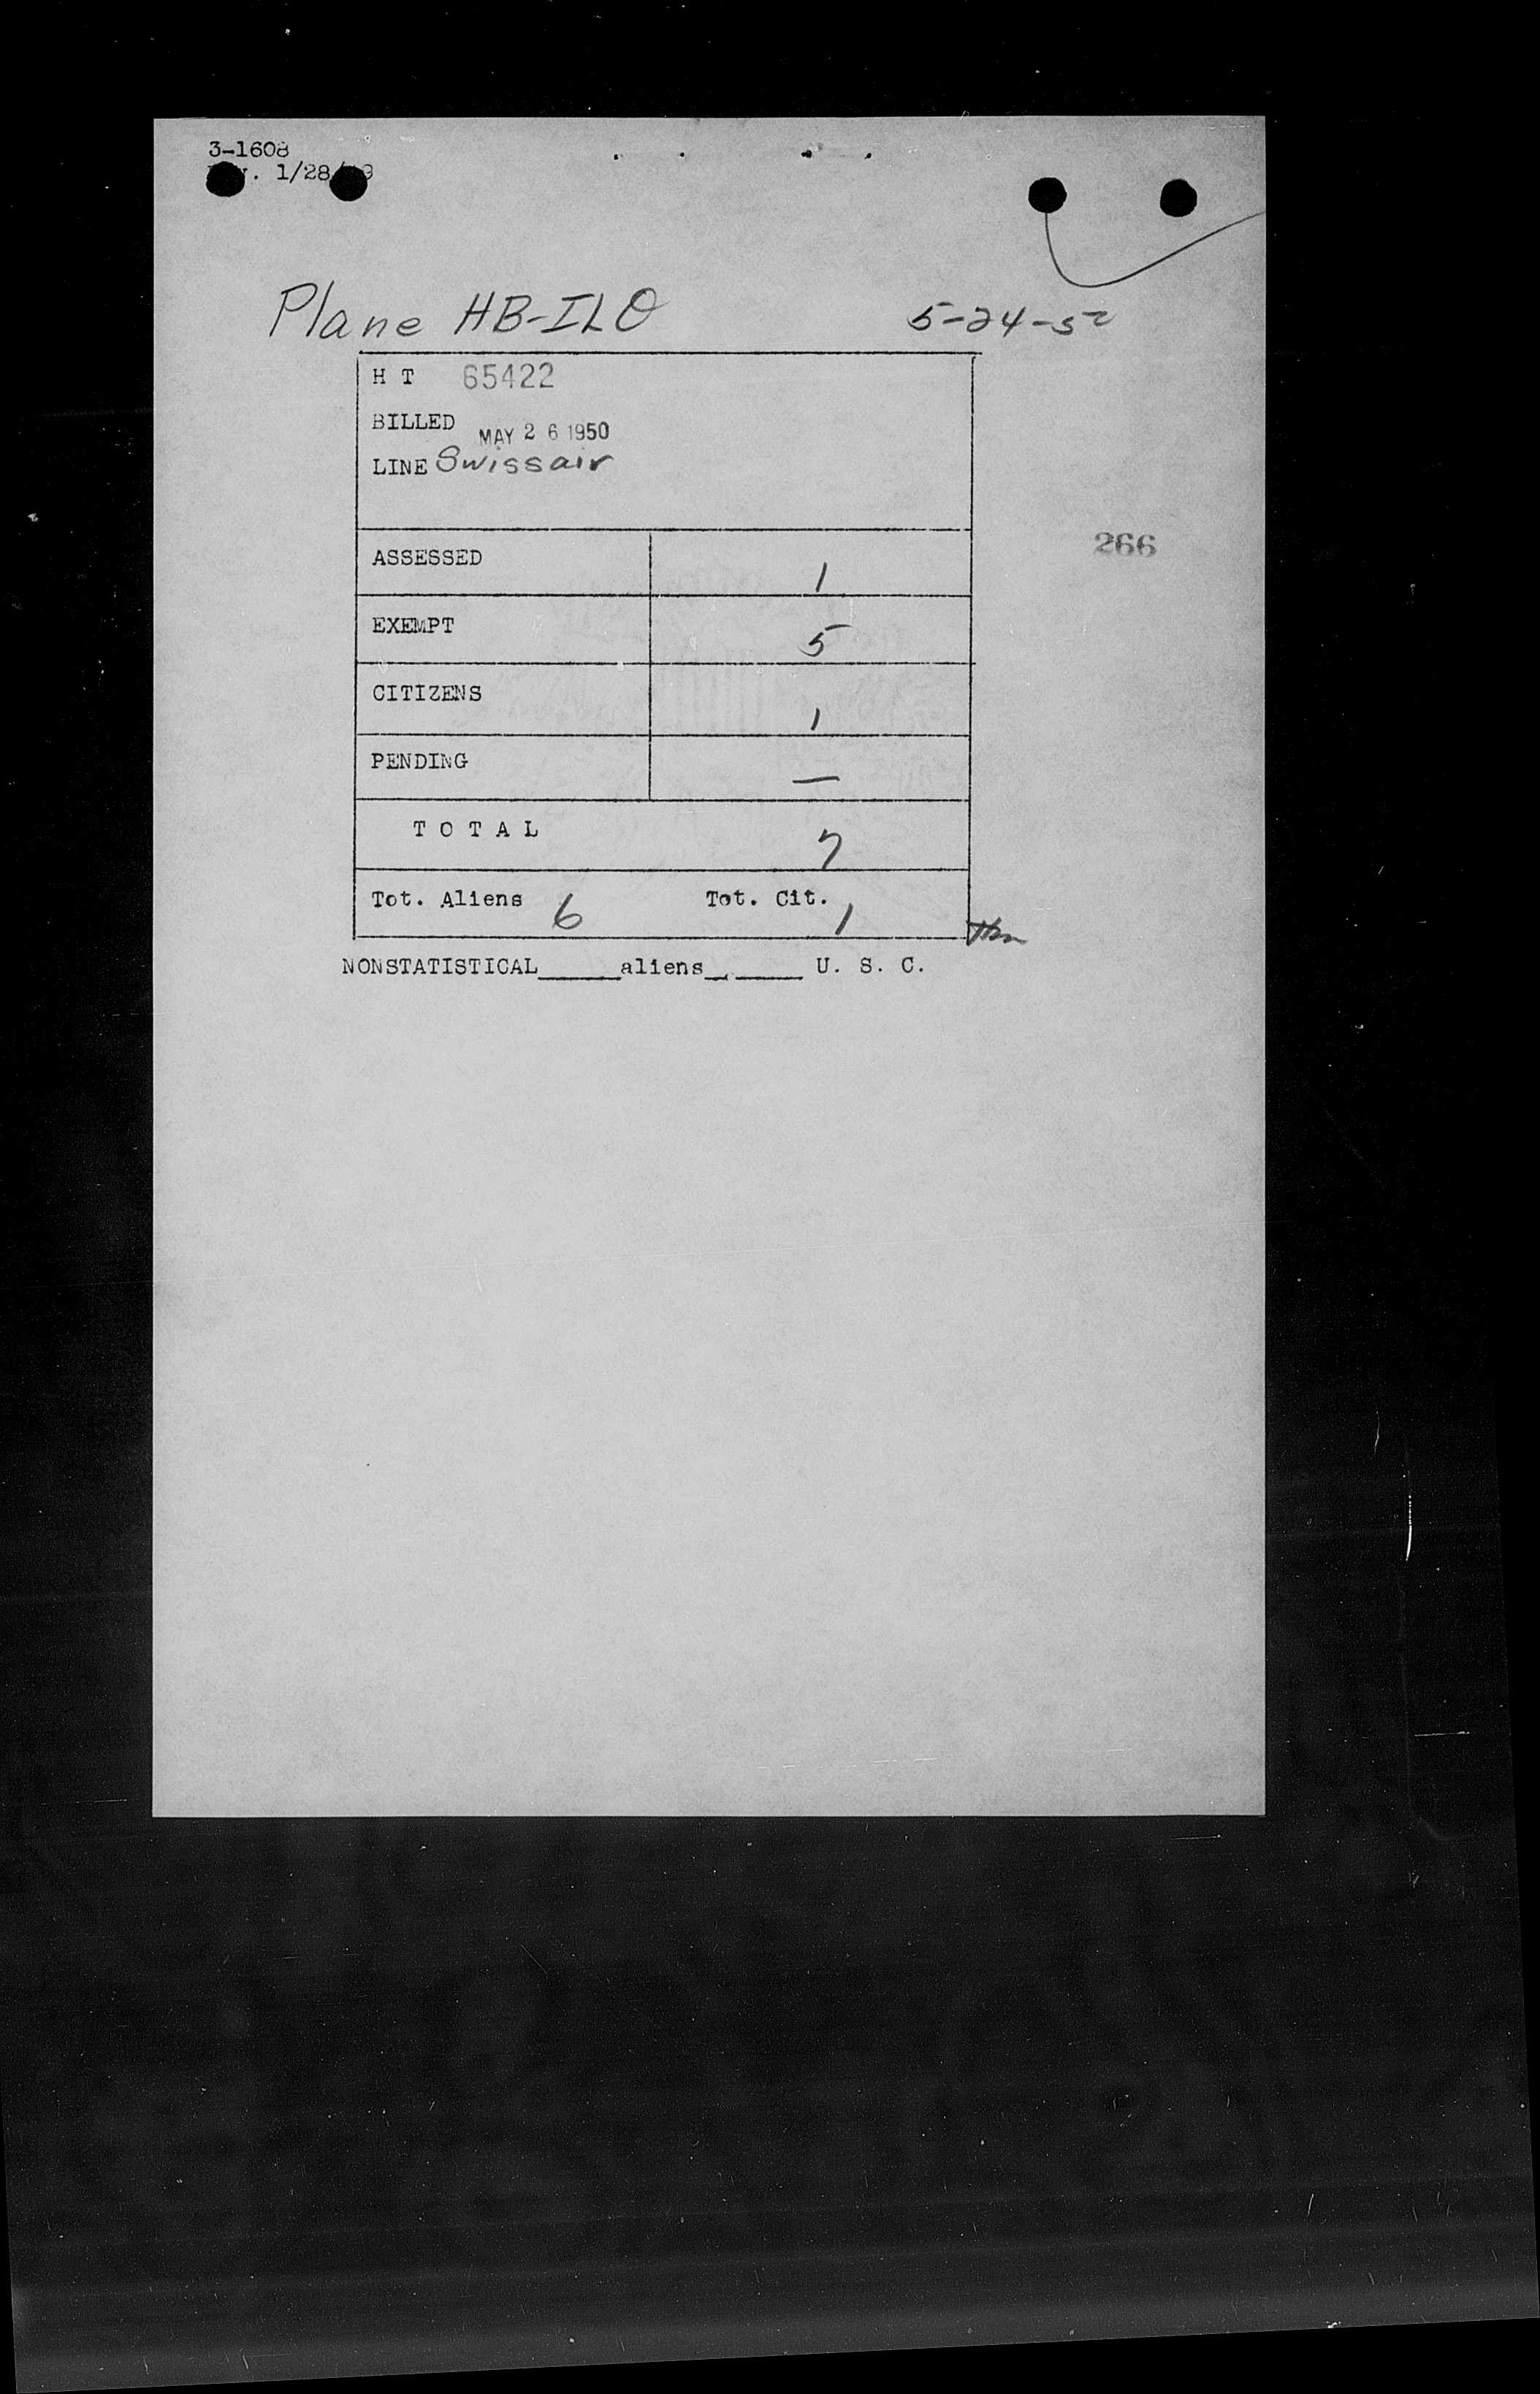 3-1608
1/28/
Plane HB-ILO 5-24-50
H T 65422
BILLED MAY 26 1950
LINE Swissair
266
ASSESSED 1
EXEMPT 5
CITIZENS 1
PENDING —
TOTAL 7
Tot. Aliens 6 Tot. Cit. 1
NONSTATISTICAL_____aliens______ U. S. C.